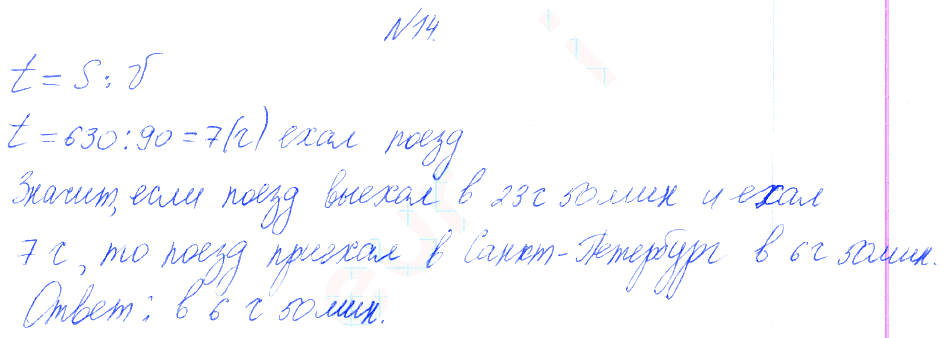 N14.
t = S : v
t = 630 : 90 = 7 (ч) ехал поезд
Значит, если поезд выехал в 23 ч 50 мин и ехал
7 ч, то поезд приехал в Санкт-Петербург в 6 ч 50 мин.
Ответ: в 6 ч 50 мин.